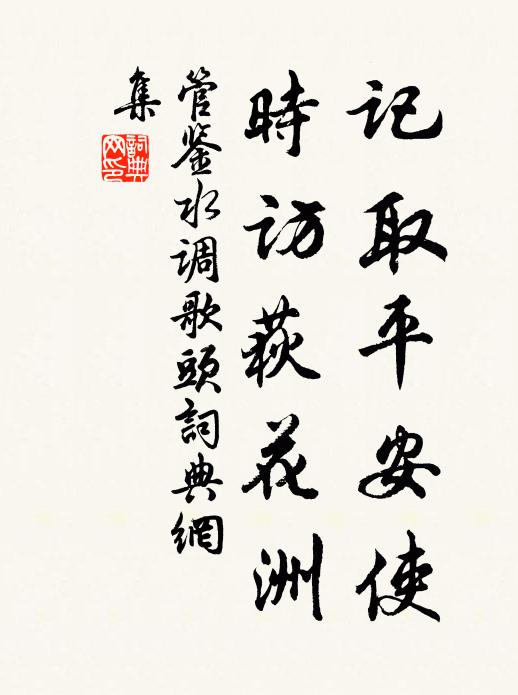 记取平安使
時访荻花洲
管鉴水调歌頭詞典網
集
詞典
网印